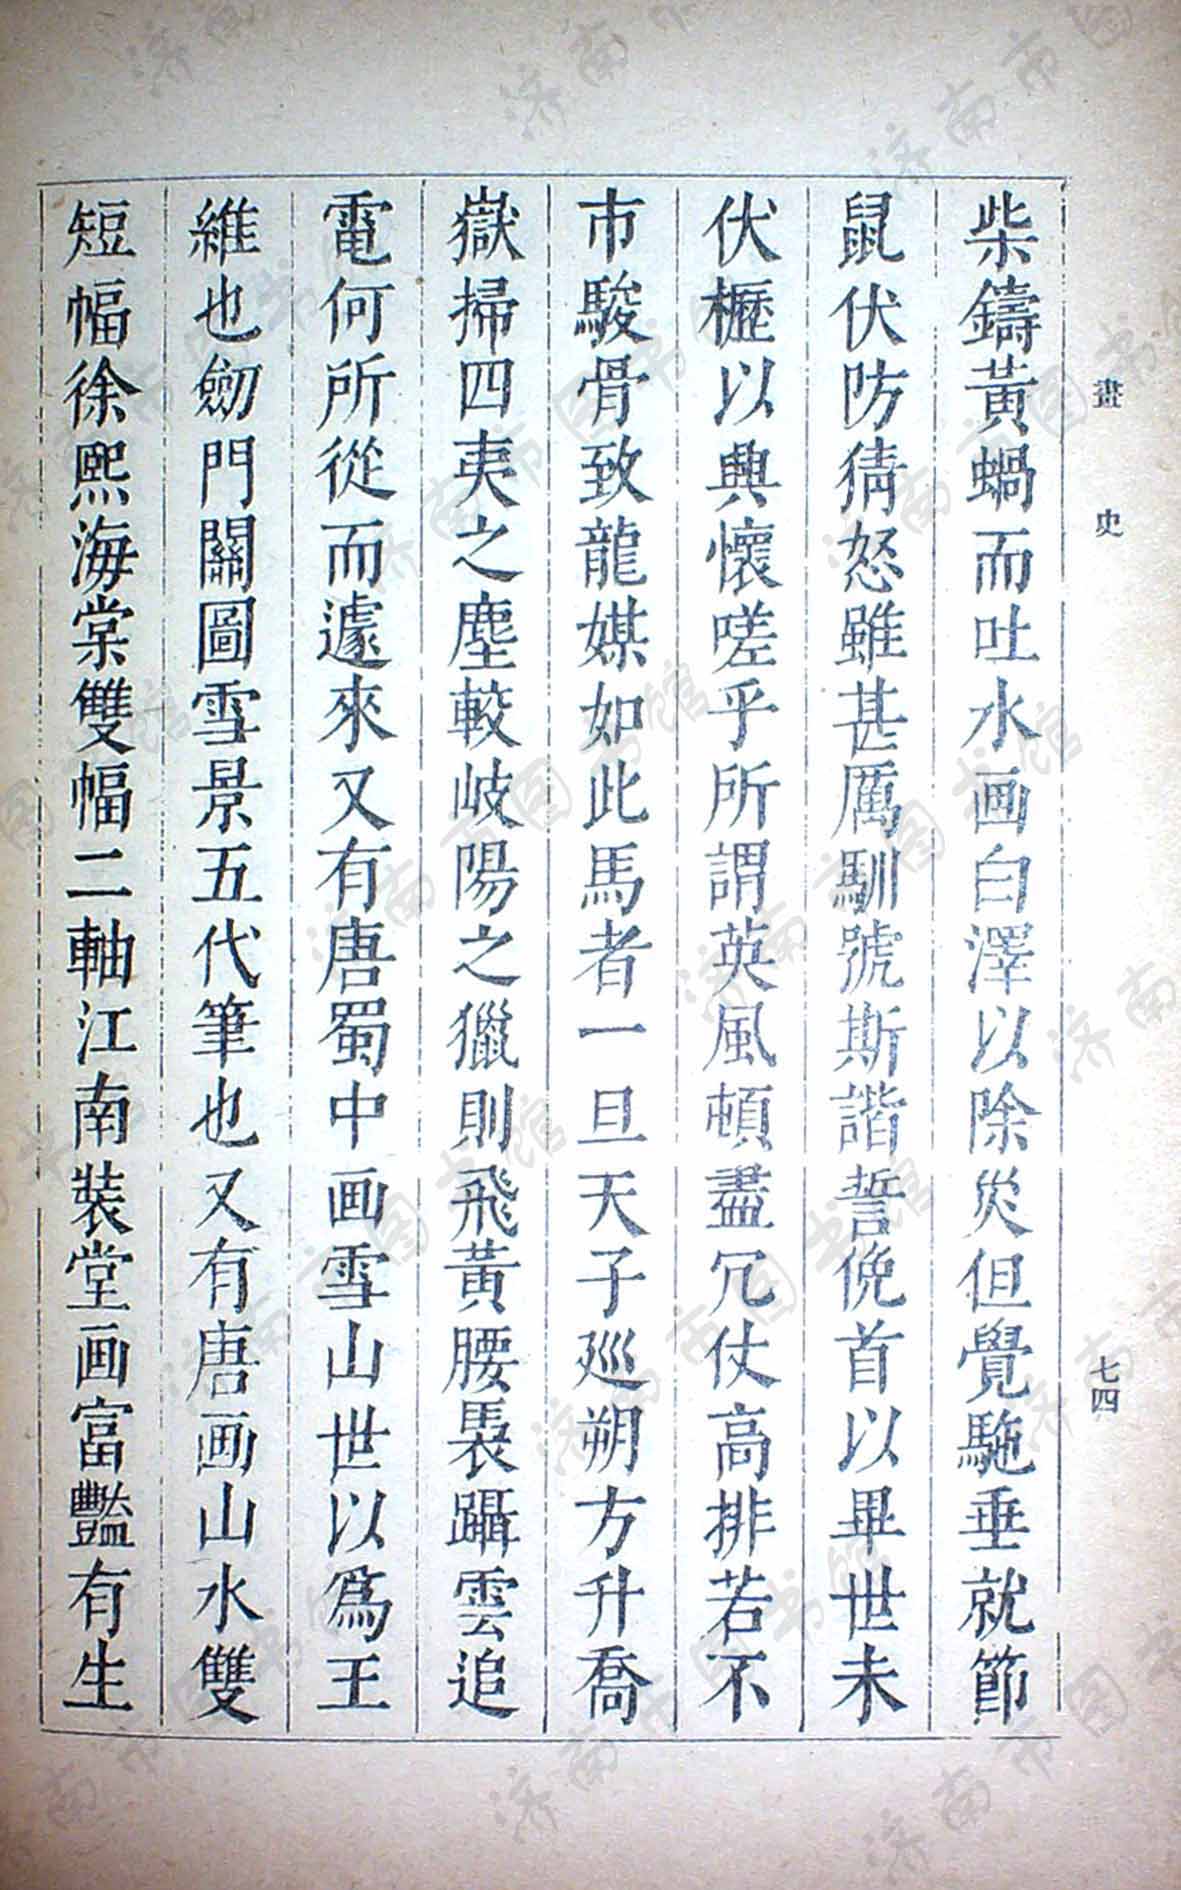 畫史
七四
柴鑄黃蝸而吐水画白澤以除災但覺駞垂就節
鼠伏防猜怒雖甚厲馴號斯諧誓俛首以畢世未
伏櫪以興懷嗟乎所謂英風頓盡冗仗高排若不
市駿骨致龍媒如此馬者一旦天子巡朔方升喬
嶽掃四夷之塵較岐陽之獵則飛黃腰褭躡雲追
電何所從而遽來又有唐蜀中画雪山世以爲王
維也劒門關圖雪景五代筆也又有唐画山水雙
短幅徐熙海棠雙幅二軸江南裝堂画富豔有生
济南市图书馆